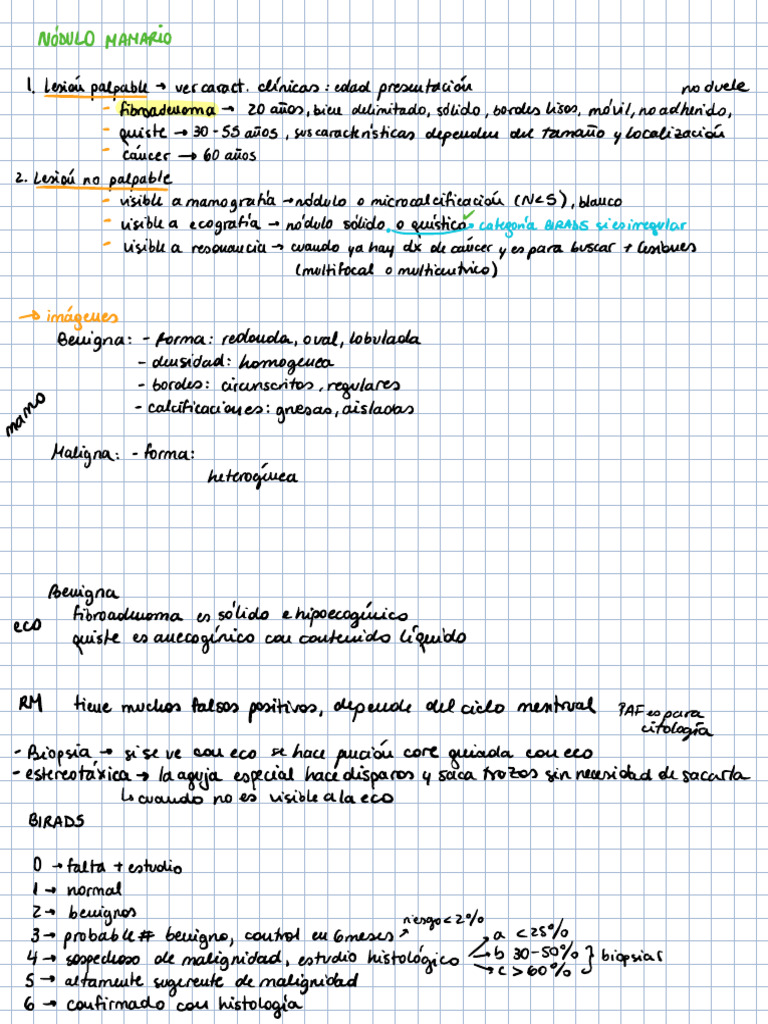 NÓDULO MAMARIO
1. Lesión palpable → ver caract. clínicas: edad presentación no duele
- fibroadenoma → 20 años, bien delimitado, sólido, bordes lisos, móvil, no adherido,
- quiste → 30-55 años, sus características dependen del tamaño y localización
- cáncer → 60 años
2. Lesión no palpable
- visible a mamografía → nódulo o microcalcificación (N<5), blanco
- visible a ecografía → nódulo sólido o quístico ✓ categoría BIRADS si es irregular
- visible a resonancia → cuando ya hay dx de cáncer y es para buscar + lesiones
(multifocal o multicentrico)
→ imágenes
Benigna: - forma: redonda, oval, lobulada
- densidad: homogenea
- bordes: circunscritos, regulares
- calcificaciones: gruesas, aisladas
mamo
Maligna: - forma:
heterogénea
Benigna
fibroadenoma es sólido e hipoecogénico
eco
quiste es anecogénico con contenido líquido
RM tiene muchos falsos positivos, depende del ciclo menstrual PAF es para
citología
- Biopsia → si se ve con eco se hace punción core guiada con eco
- estereotáxica → la aguja especial hace disparos y saca trozos sin necesidad de sacarla
↳ cuando no es visible a la eco
BIRADS
0 → falta + estudio
1 → normal
2 → benignos
3 → probable # benigno, control en 6 meses ↗ riesgo < 2%
4 → sospechoso de malignidad, estudio histológico → a < 25% b 30-50% c > 60% } biopsiar
5 → altamente sugerente de malignidad
6 → confirmado con histología